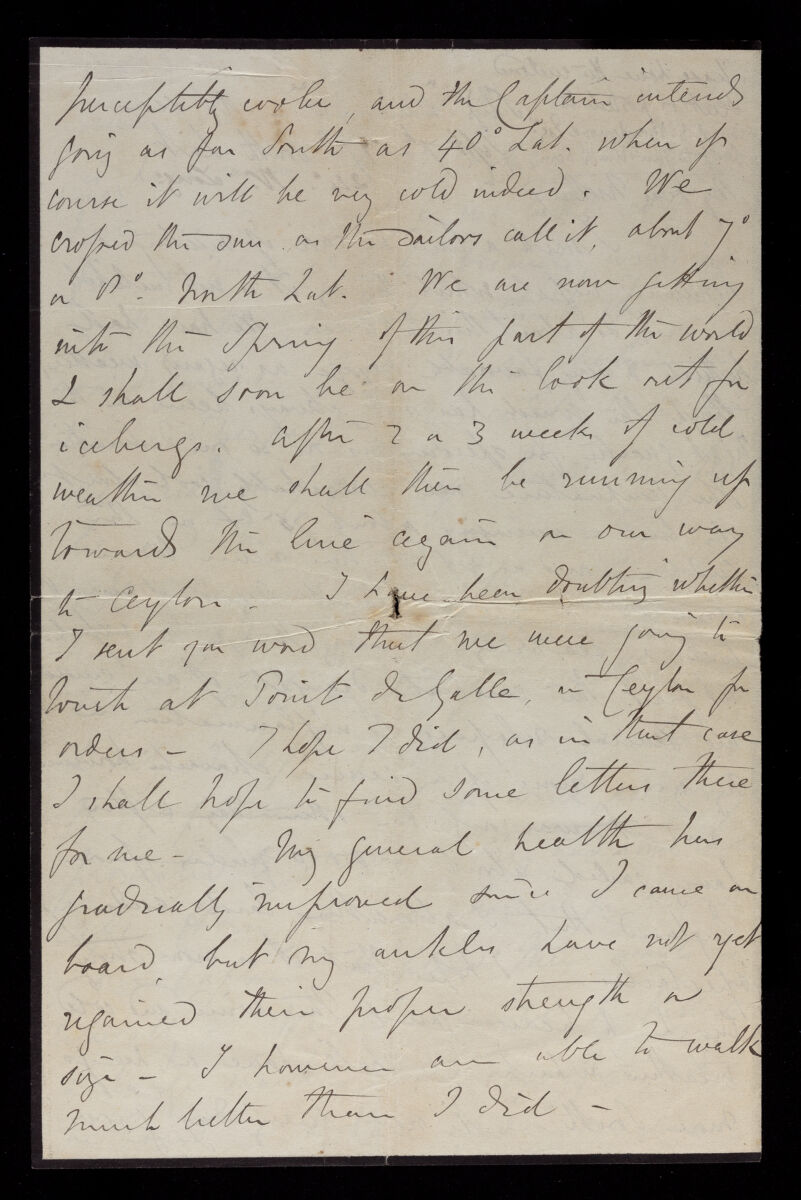 perceptibly cooler, and the Captain intends
going as far South as 40° Lat. when of
course it will be very cold indeed. We
crossed the sun as the sailors call it, about 7°
or 8° North Lat. We are now getting
into the Spring of this part of the world
& shall soon be on the look out for
icebergs. After 2 or 3 weeks of cold
weather we shall then be running up
towards the line again on our way
to Ceylon - I have been doubting whether
I sent you word that we were going to
touch at Point de Galle, in Ceylon for
orders - I hope I did, as in that case
I shall hope to find some letters there
for me - My general health has
gradually improved since I came on
board, but my ankles have not yet
regained their proper strength or
size - I however am able to walk
much better than I did -